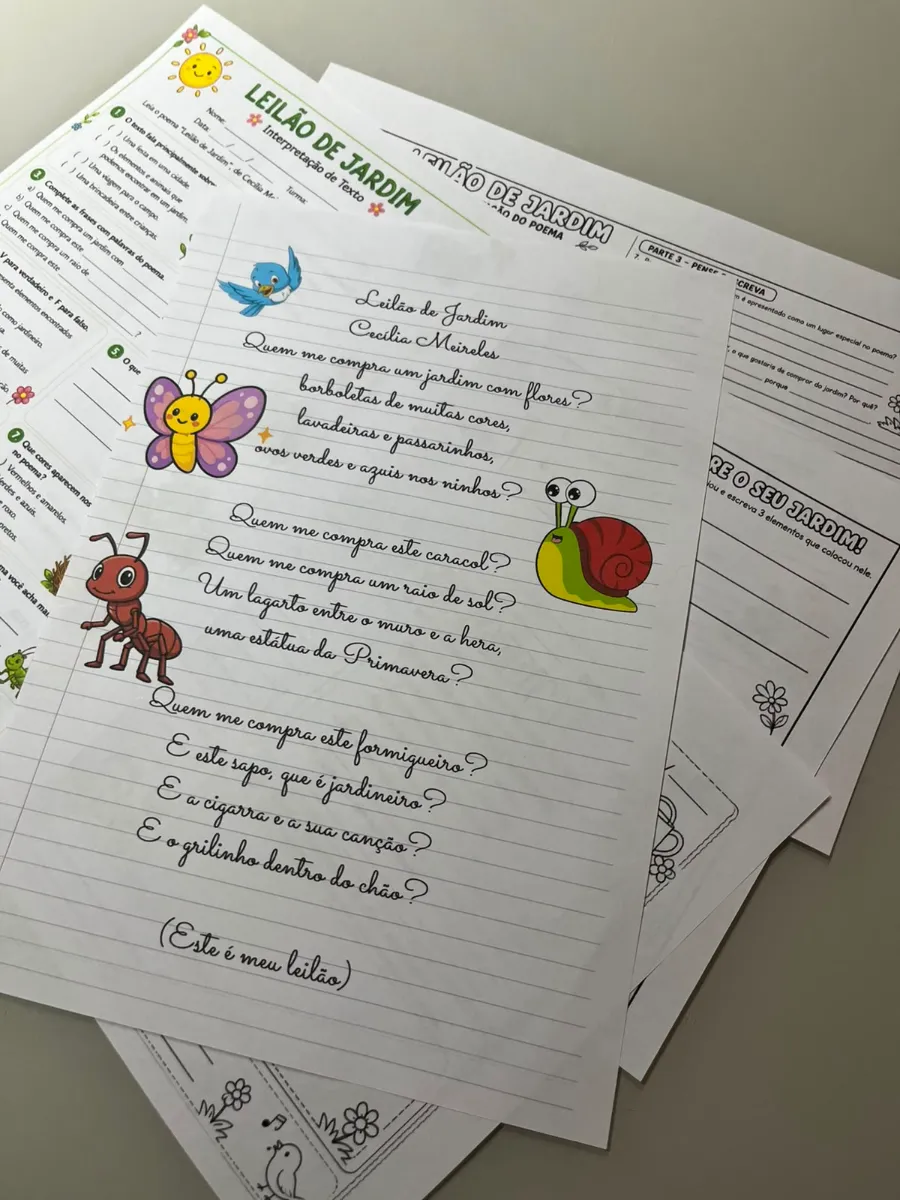 Leilão de Jardim
Cecília Meireles
Quem me compra um jardim com flores?
borboletas de muitas cores,
lavadeiras e passarinhos,
ovos verdes e azuis nos ninhos?
Quem me compra este caracol?
Quem me compra um raio de sol?
Um lagarto entre o muro e a hera,
uma estátua da Primavera?
Quem me compra este formigueiro?
E este sapo, que é jardineiro?
E a cigarra e a sua canção?
E o grilinho dentro do chão?
(Este é meu leilão)
LEILÃO DE JARDIM
Interpretação de Texto
Nome:
Data: / / Turma:
Leia o poema "Leilão de Jardim", de Cecília
1 O texto fala principalmente sobre:
( ) Uma festa em uma cidade.
( ) Os elementos e animais que
podemos encontrar em um jardim.
( ) Uma viagem para o campo.
( ) Uma brincadeira entre crianças.
Complete as frases com palavras do poema.
a) Quem me compra um jardim com
b) Quem me compra este
c) Quem me compra um raio de
Quem me compra este ?
V para verdadeiro e F para falso.
elementos encontrados
como jardineiro.
de muitas
5 O que
7 Que cores aparecem nos
no poema?
) Vermelhos e amarelos.
erdes e azuis.
e roxo.
pretos.
você acha
LEILÃO DE JARDIM
DO POEMA
PARTE 3 -
CREVA
é apresentado como um lugar especial no poema?
o que gostaria de comprar do jardim? Por quê?
porque
RE O SEU JARDIM!
e escreva 3 elementos que colocou nele.